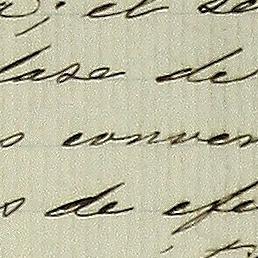 ; el se
lase de
s conven
s de efe